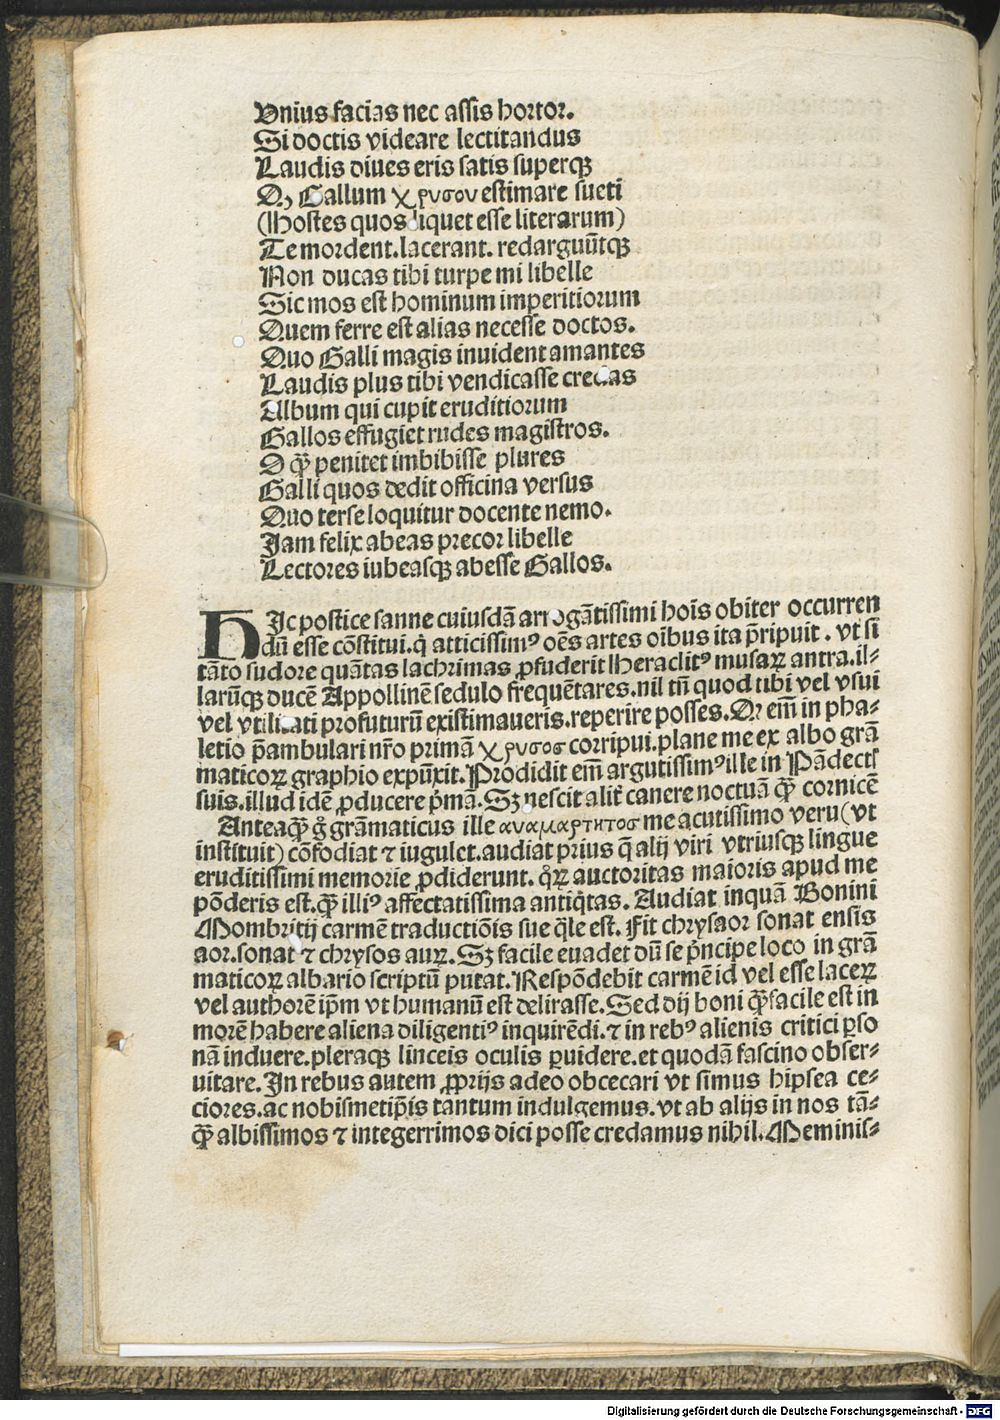 Vnius facias nec assis hortor.
Si doctis videare lectitandus
Laudis diues eris satis superqꝫ
Qꝫ Gallum χρυσου estimare sueti
(Hostes quos liquet esse literarum)
Te mordent. lacerant. redarguūtqꝫ
Non ducas tibi turpe mi libelle
Sic mos est hominum imperitiorum
Quem ferre est alias necesse doctos.
Quo Galli magis inuident amantes
Laudis plus tibi vendicasse credas
Album qui cupit eruditiorum
Gallos effugiet rudes magistros.
O qꝫ̄ penitet imbibisse plures
Galli quos dedit officina versus
Quo terse loquitur docente nemo.
Jam felix abeas precor libelle
Lectores iubeasqꝫ abesse Gallos.
HJc postice sanne cuiusdā arrogātissimi hoīs obiter occurren
dū esse cōstitui. q̇ atticissimꝰ oēs artes oībus ita p̄ripuit. vt si
tāto sudore quātas lachrimas ꝓfuderit Heraclitꝰ musaꝝ antra. il⸗
larūqꝫ ducē Appollinē sedulo frequētares. nil tn̄ quod tibi vel vsui
vel vtilitati profuturū existimaueris. reperire posses. Qꝛ em̄ in pha⸗
letio p̄ambulari nr̄o primā χρυσος corripui. plane me ex albo grā
maticoꝝ graphio expūxit. Prodidit em̄ argutissimꝰ ille in Pādectꝭ
suis. illud idē ꝓducere p̄mā. Sꝫ nescit alit̄ canere noctuā qꝫ̄ cornicē
Anteaqꝫ̄ g̊ grāmaticus ille αναμαρτητος me acutissimo veru (vt
instituit) cōfodiat ⁊ iugulet. audiat prius q̄ alij viri vtriusqꝫ lingue
eruditissimi memorie ꝓdiderunt. q̊ꝝ auctoritas maioris apud me
pōderis est. qꝫ̄ illiꝰ affectatissima antiq̇tas. Audiat inquā Bonini
Mombritij carmē traductiōis sue q̄le est. Fit chrysaor sonat ensis
aor. sonat ⁊ chrysos auꝝ. Sꝫ facile euadet dū se p̄ncipe loco in grā
maticoꝝ albario scriptū putat. Respōdebit carmē id vel esse laceꝝ
vel authorē ip̄m vt humanū est delirasse. Sed dij boni qꝫ̄ facile est in
morē habere aliena diligentiꝰ inquirēdi. ⁊ in rebꝰ alienis critici ꝑso
nā induere. pleraqꝫ linceis oculis ꝑuidere. et quodā fascino obser⸗
uitare. In rebus autem ꝓprijs adeo obcecari vt simus hipsea ce⸗
ciores. ac nobismetip̄is tantum indulgemus. vt ab alijs in nos tā⸗
qꝫ̄ albissimos ⁊ integerrimos dici posse credamus nihil. Meminis⸗
Digitalisierung gefördert durch die Deutsche Forschungsgemeinschaft - DFG